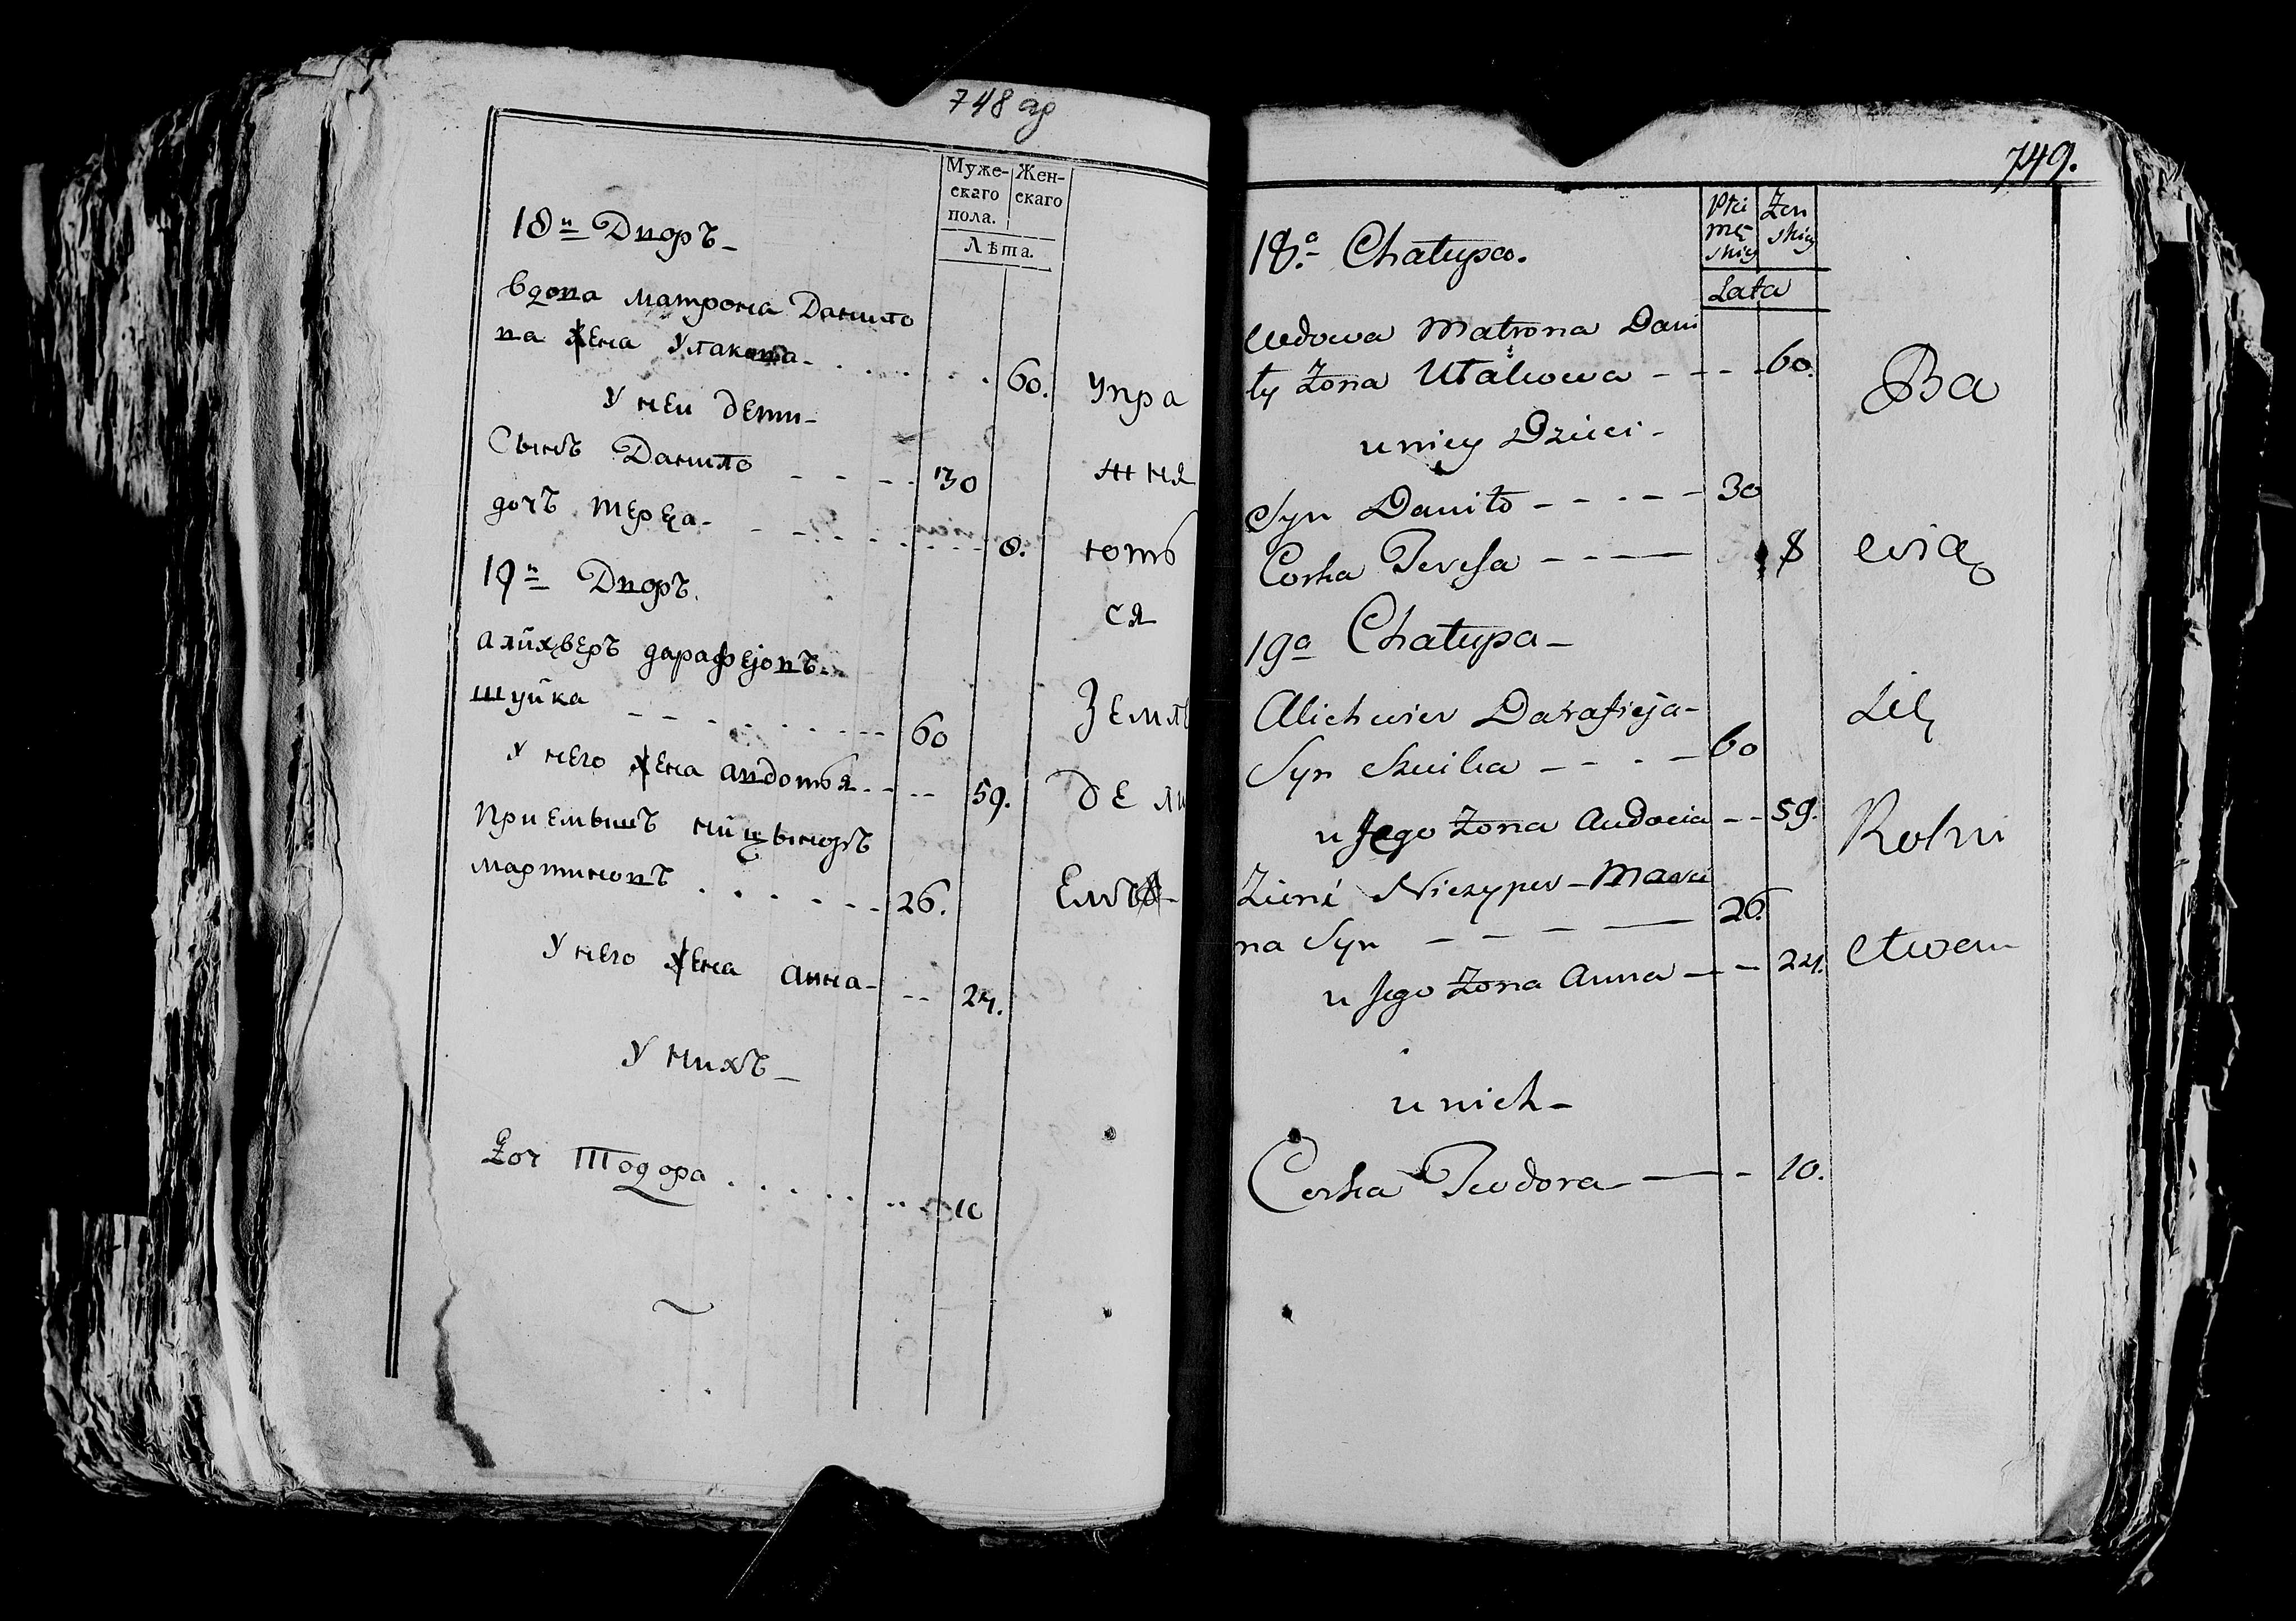 748 об
Муже- Жен-
скаго скаго
пола.
Лѣта.
18й Дворъ -
вдова матрона Данило
ва жена Улакова - . . . . . . 60.
У неи дети -
Сынъ Данило - - - - 30
дочъ тереза - - - . . . . - 8.
19й Дворъ.
алихверъ дарафеjовъ
шуйка - - - . . . - - - 60
У него жена авдотья - - - - 59.
Приемышъ ничыноръ
мартиновъ . . . . . - - 26.
У него жена анна - - - 24.
У нихъ -
Доч Тодора . . . . . . . . 10
упра
жня
ютъ
ся
Земле
дели
емъ
749.
Płci Żen
męs skiey
skiey
Lata
18a Chałupa.
Wdowa Matrona Dani
ły Żona Ułakowa - - - - 60.
u niey Dzieci -
Syn Daniło - - - - - 30
Corka Teressa - - - — 8
19a Chałupa -
Alichwier Darafieja -
Syn Szuika - - - - 60
u Jego Żona Audocia - - 59.
Zienć Niczyper - Marci
na Syn - - - - — 26.
u Jego Żona Anna - - 24.
u nich -
Corka Teodora — - 10.
Ba
wią
Się
Rolni
ctwem